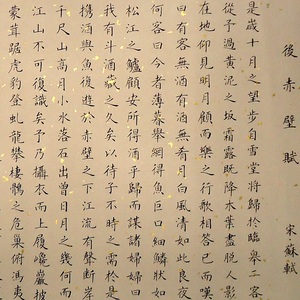 後赤壁賦
宋蘇軾
是歲十月之望步自雪堂將歸於臨皋二客
從予過黃泥之坂霜露既降木葉盡脫人影
在地仰見明月顧而樂之行歌相答已而嘆
曰有客無酒有酒無肴月白風清如此良夜
何客曰今者薄暮舉網得魚巨口細鱗狀如
松江之鱸顧安所得酒乎歸而謀諸婦婦曰
我有斗酒藏之久矣以待子不時之需於是
攜酒與魚復遊於赤壁之下江流有聲斷岸
千尺山高月小水落石出曾日月之幾何而
江山不可復識矣予乃攝衣而上履巉巖披
蒙茸踞虎豹登虬龍攀棲鶻之危巢俯馮夷